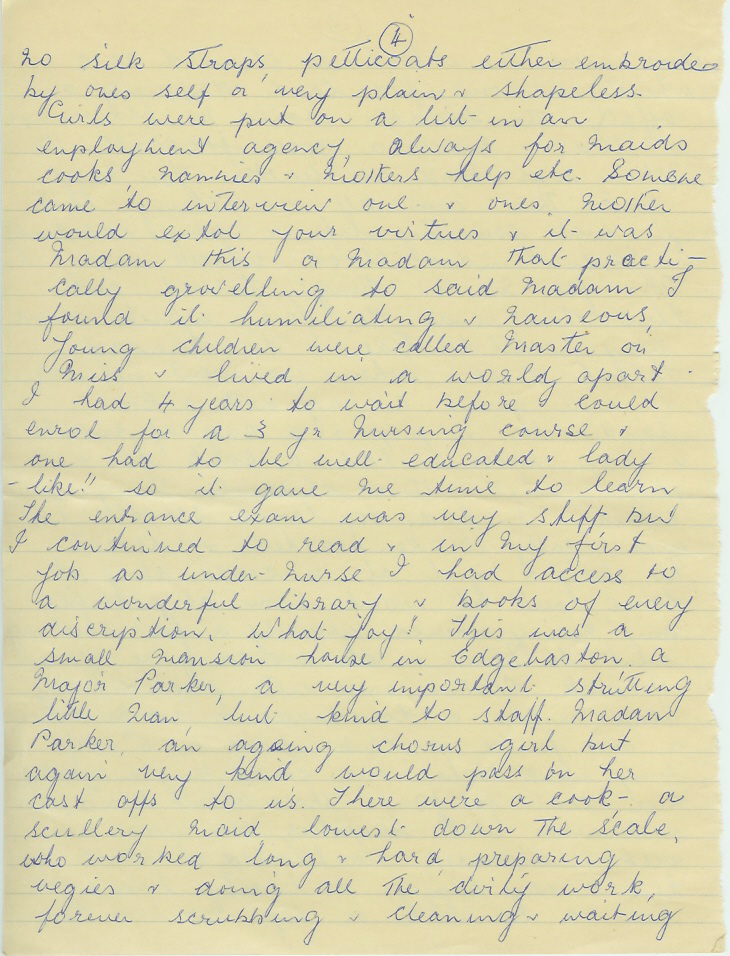 4
no silk straps, petticoats either embroider
by ones self or very plain & shapeless.
Girls were put on a list in an
employment agency, always for maids
cooks nannies & mothers help etc. Someone
came to interview one & ones Mother
would extol your virtues & it was
Madam this or Madam that practi-
cally grovelling to said Madam I
found it humiliating & nauseous,
Young children were called Master or
Miss & lived in a world apart.
I had 4 years to wait before I could
enrol for a 3 yr Nursing course &
one had to be well educated & lady
-like!! so it gave me time to learn
The entrance exam was very stiff but
I continued to read & in my first
job as under-nurse I had access to
a wonderful library & books of every
discription, What joy! This was a
small mansion house in Edgebaston, a
Major Parker, a very important strutting
little man, but kind to staff. Madam
Parker, an ageing chorus girl but
again very kind would pass on her
cast offs to us. There were a cook - a
scullery maid lowest down the scale,
who worked long & hard preparing
vegies & doing all the dirty work,
forever scrubbing & cleaning & waiting